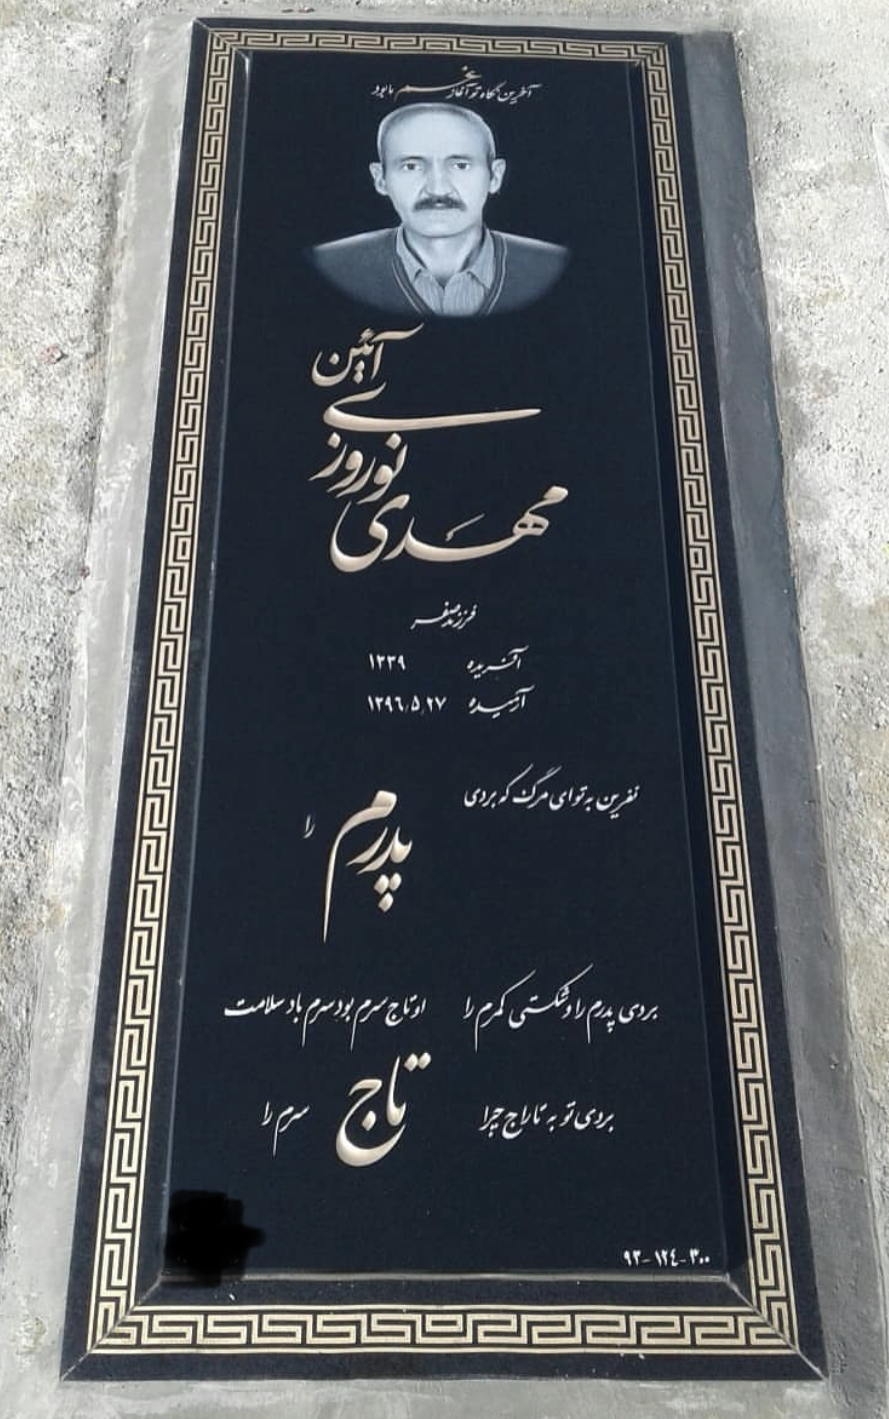 آخرین نگاه تو آغاز غم ما بود
آئین
نوروزی
مهدی
فرزند صفر
آفریده ۱۳۳۹
آرمیده ۱۳۹۶٫۵٫۲۷
نفرین به تو ای مرگ که بردی پدرم را
بردی پدرم را و شکستی کمرم را
او تاج سرم بود سرم باد سلامت
بردی تو به تاراج چرا تاج سرم را
۹۳-۱۲۴-۳۰۰